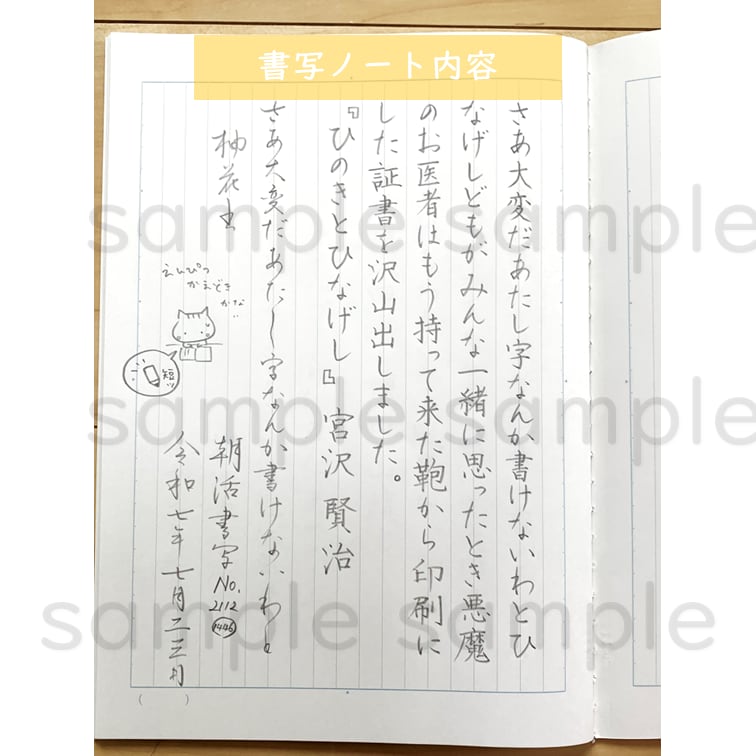 書写ノート内容
さあ大変だあたし字なんか書けないわとひ
なげしどもがみんな一緒に思ったとき悪魔
のお医者はもう持って来た鞄から印刷に
した証書を沢山出しました。
『ひのきとひなげし』宮沢 賢治
さあ大変だあたし字なんか書けないわと
柚花
えんぴつ
かえどき
かな
短ッ
朝活書写No.
2112
1446
令和七年七月二三日
sample sample
sample sample
sample sample